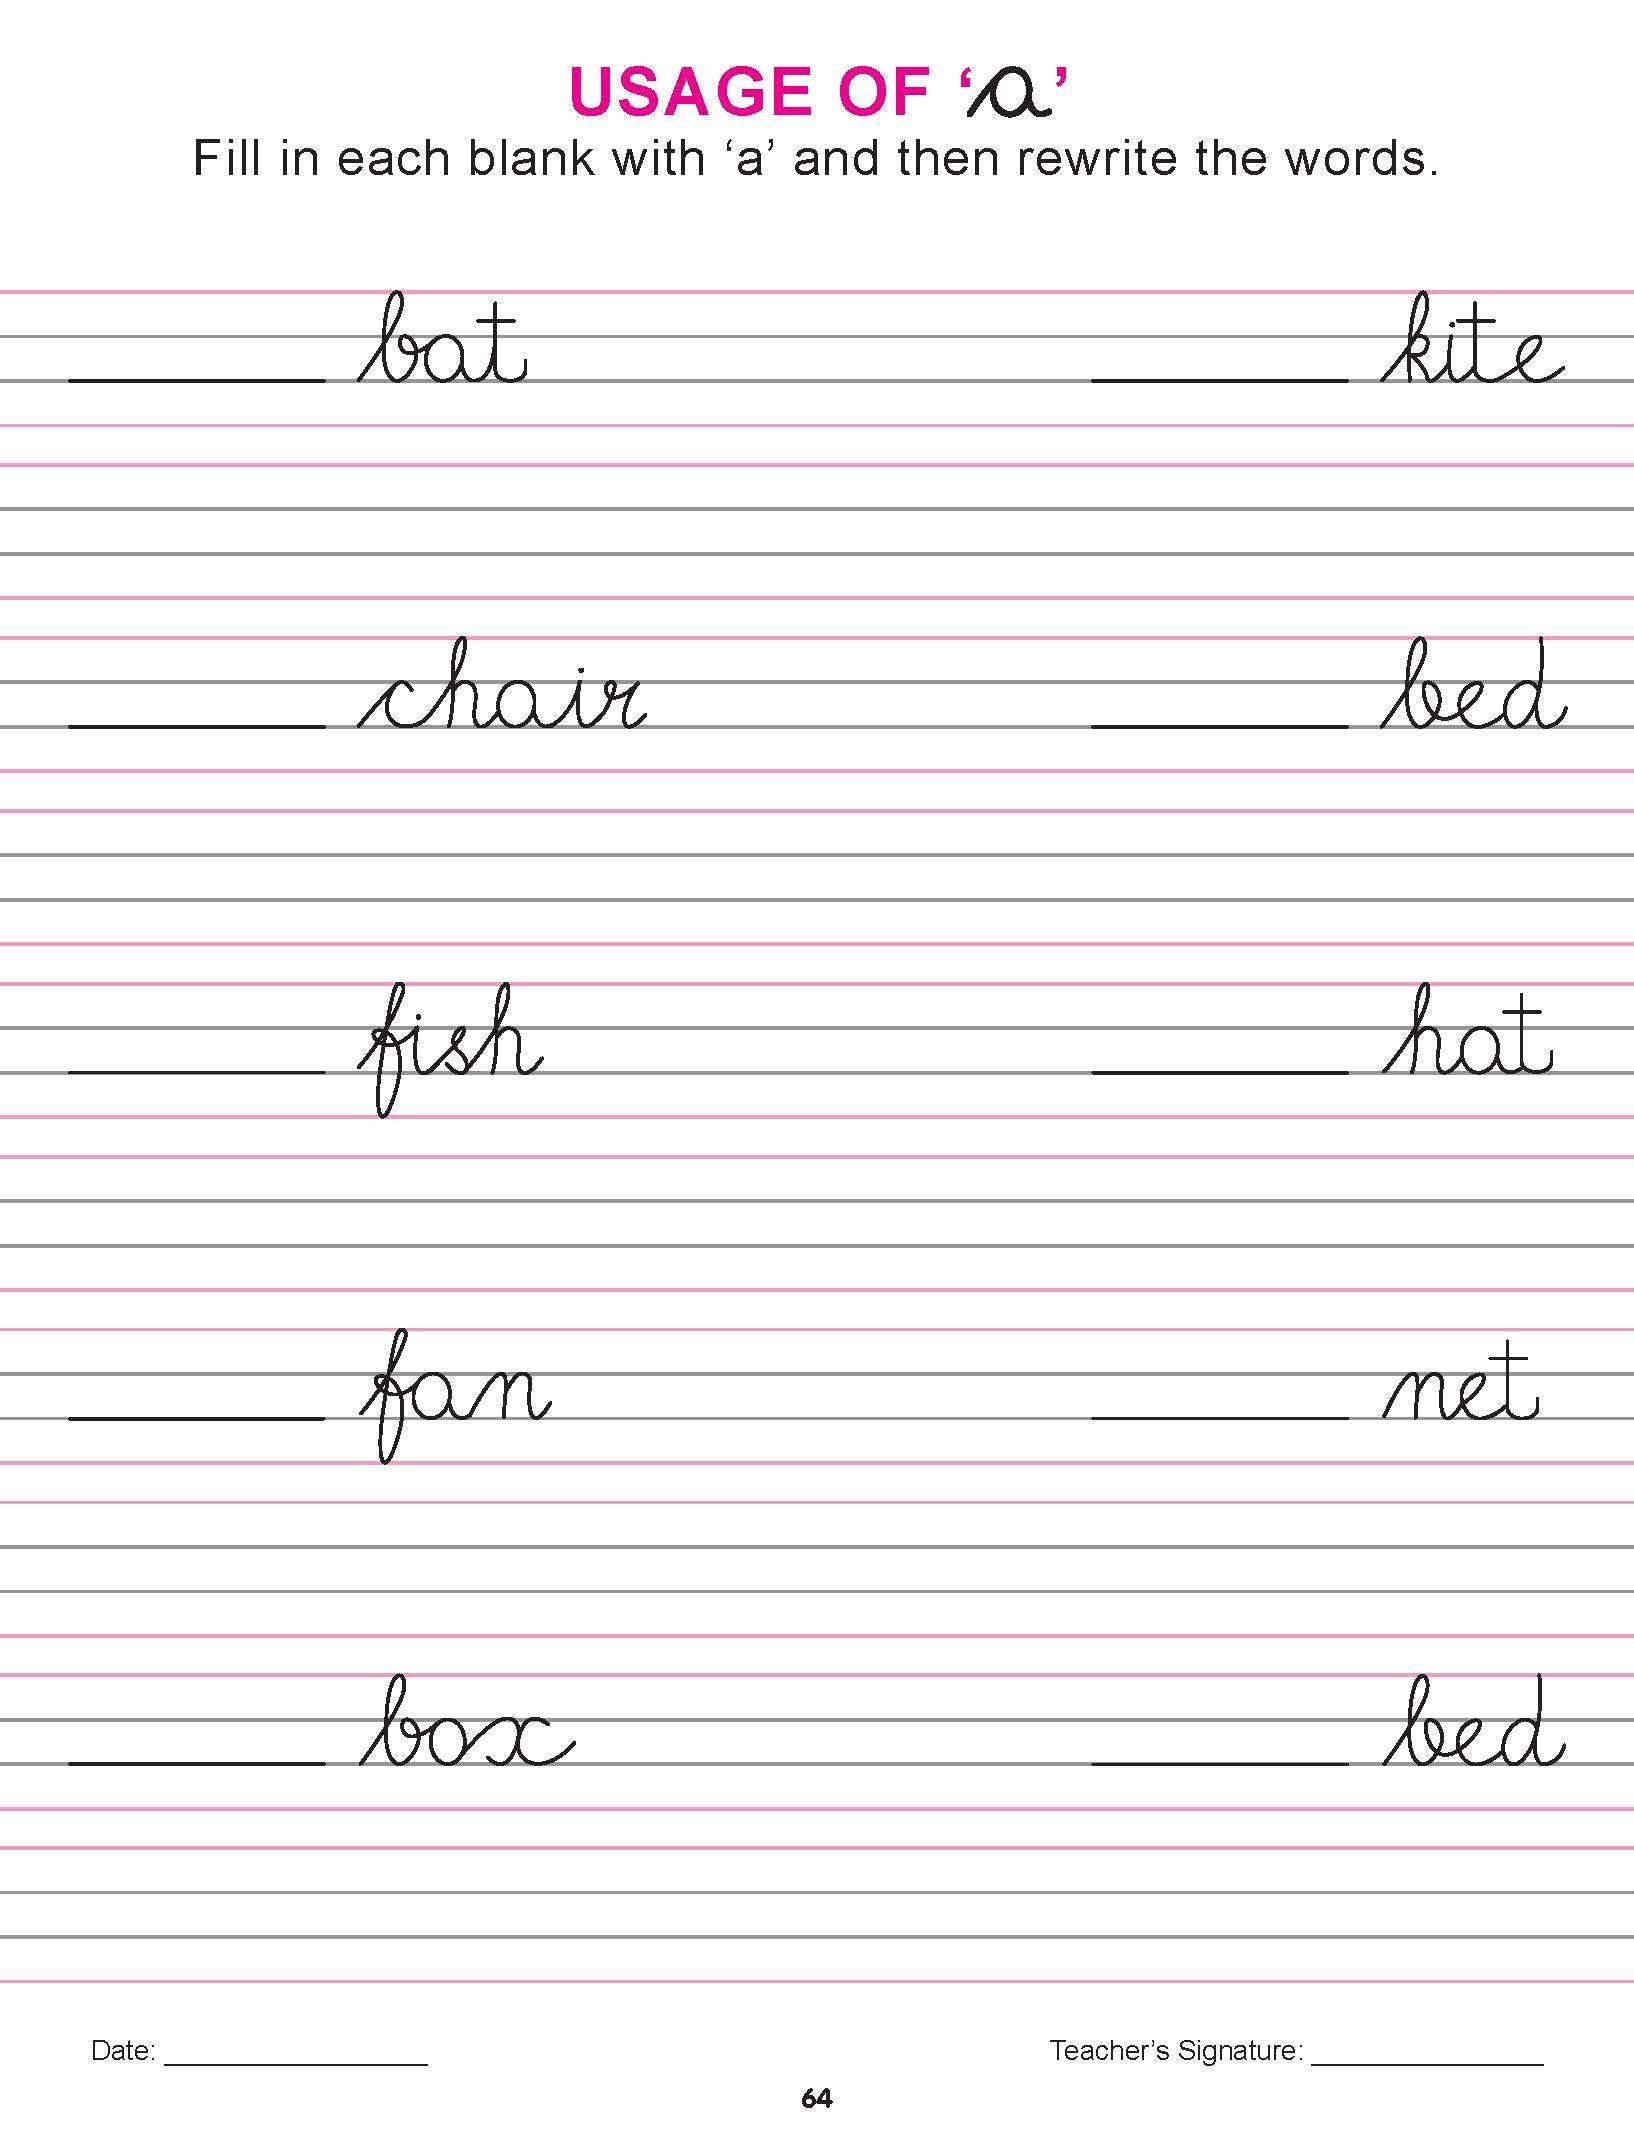 USAGE OF ‘a’
Fill in each blank with ‘a’ and then rewrite the words.
________ bat ________ kite
________ chair ________ bed
________ fish ________ hat
________ fan ________ net
________ box ________ bed
Date: ________________ Teacher’s Signature: ______________
64